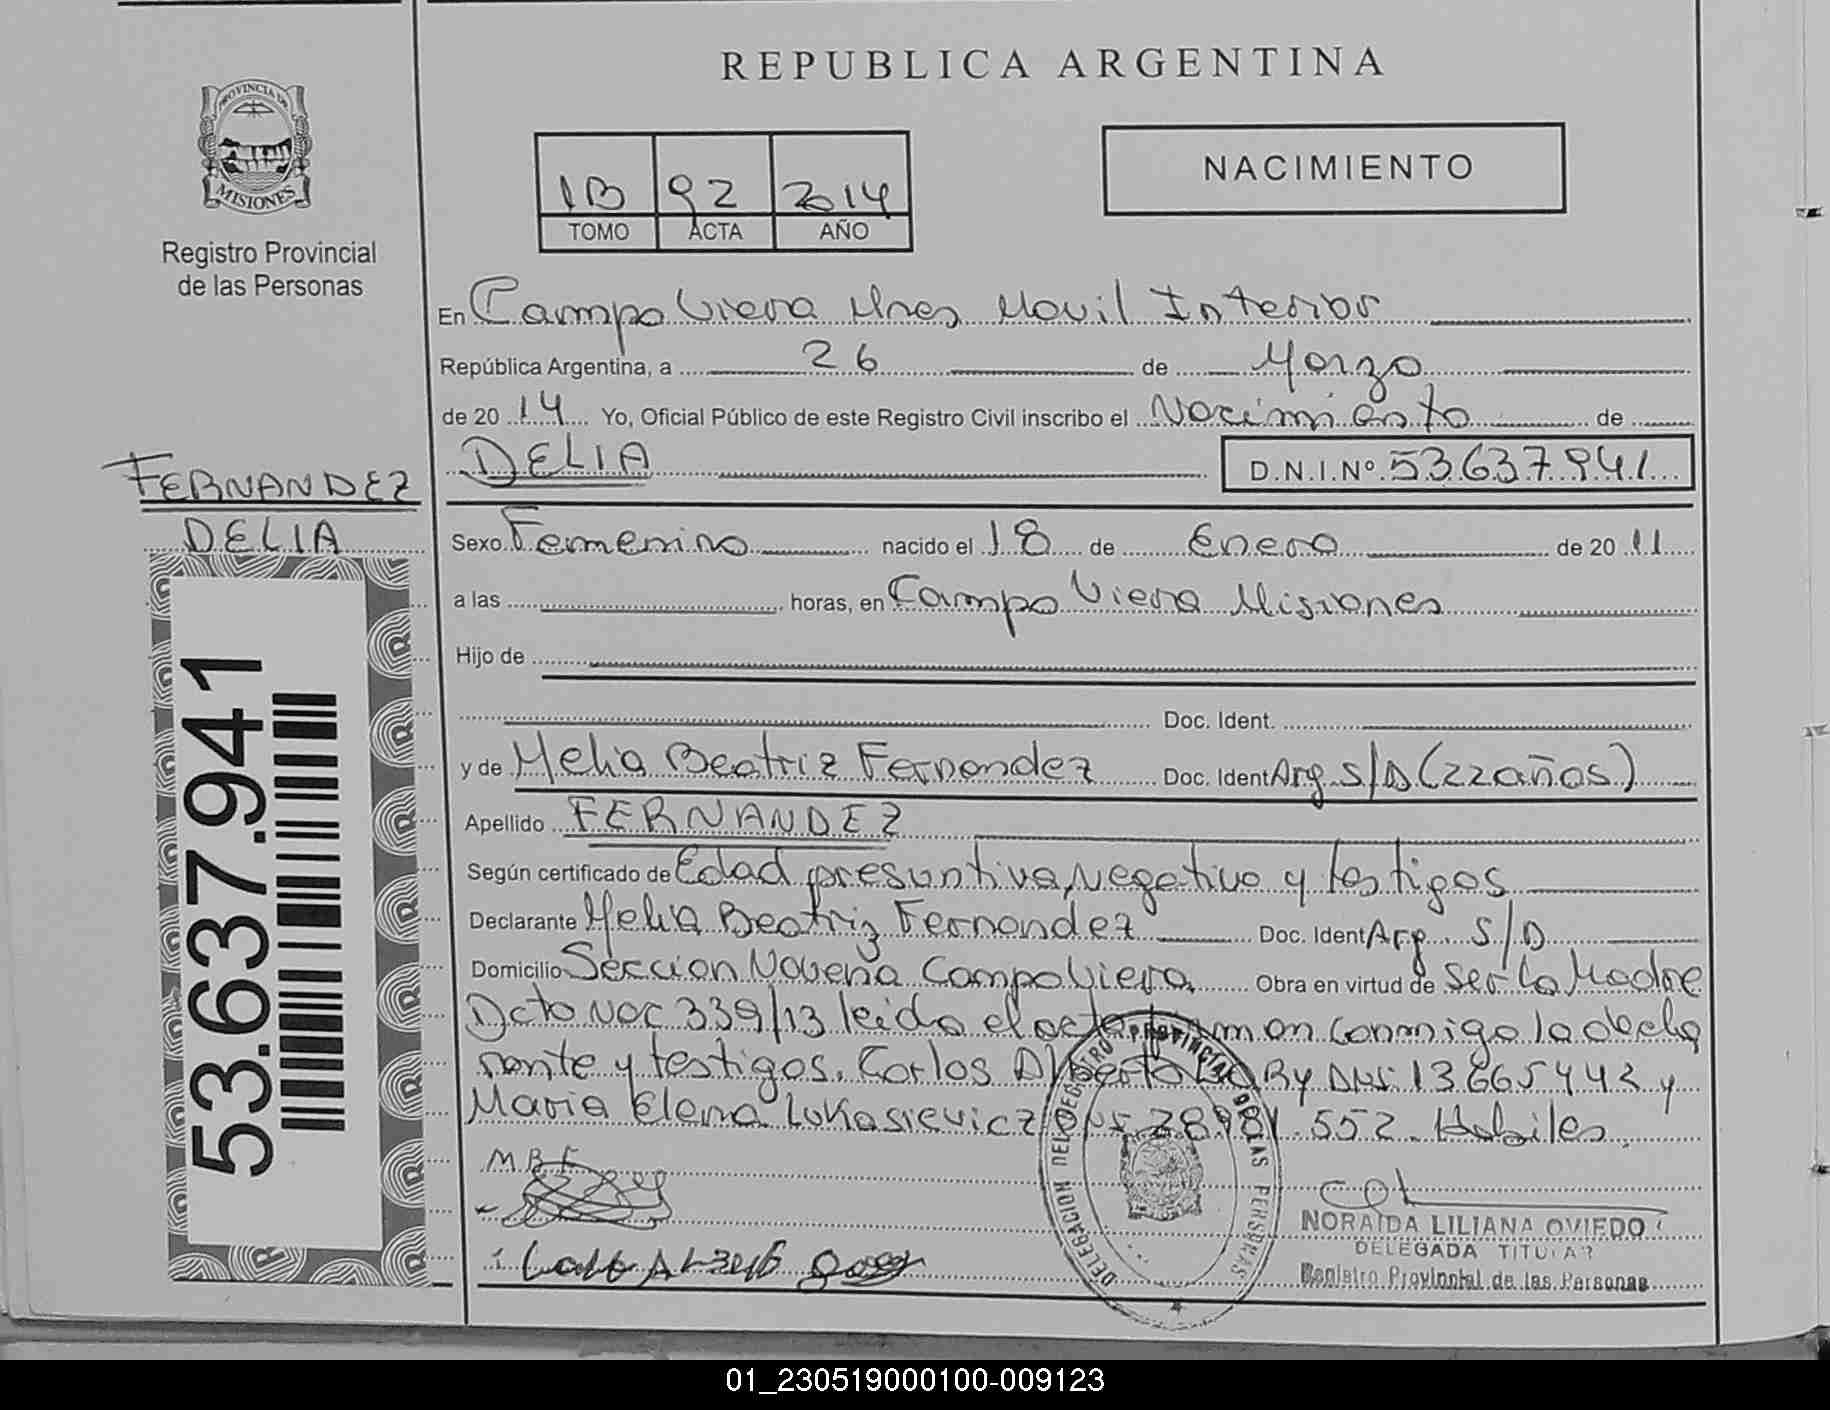 REPUBLICA ARGENTINA
PROVINCIA DE
MISIONES
Registro Provincial
de las Personas
1B 92 2014
TOMO ACTA AÑO
NACIMIENTO
En Campo Viera Mnes Movil Interior
República Argentina, a 26 de Marzo
de 2014 Yo, Oficial Público de este Registro Civil inscribo el Nacimiento de
DELIA D.N.I.Nº 53637941
FERNANDEZ
DELIA
Sexo Femenino nacido el 18 de Enero de 2011
a las horas, en Campo Viera Misiones
Hijo de
Doc. Ident.
y de Melia Beatriz Fernandez Doc. Ident Arg S/D (22años)
Apellido FERNANDEZ
Según certificado de Edad presuntiva, Negativo y testigos
Declarante Melia Beatriz Fernandez Doc. Ident Arg. S/D
Domicilio Sección Novena Campo Viera Obra en virtud de ser la Madre
Dcto Nac 339/13 leida el acta firman conmigo la decla
rante y testigos. Carlos Alberto DNI 13665442 y
Maria Elena Lukasievicz DNI 552. Habiles.
M.B.F
53.637.941
DELEGACION DEL REGISTRO PROVINCIAL DE LAS PERSONAS
NORAIDA LILIANA OVIEDO
DELEGADA TITULAR
Registro Provincial de las Personas
01_230519000100-009123